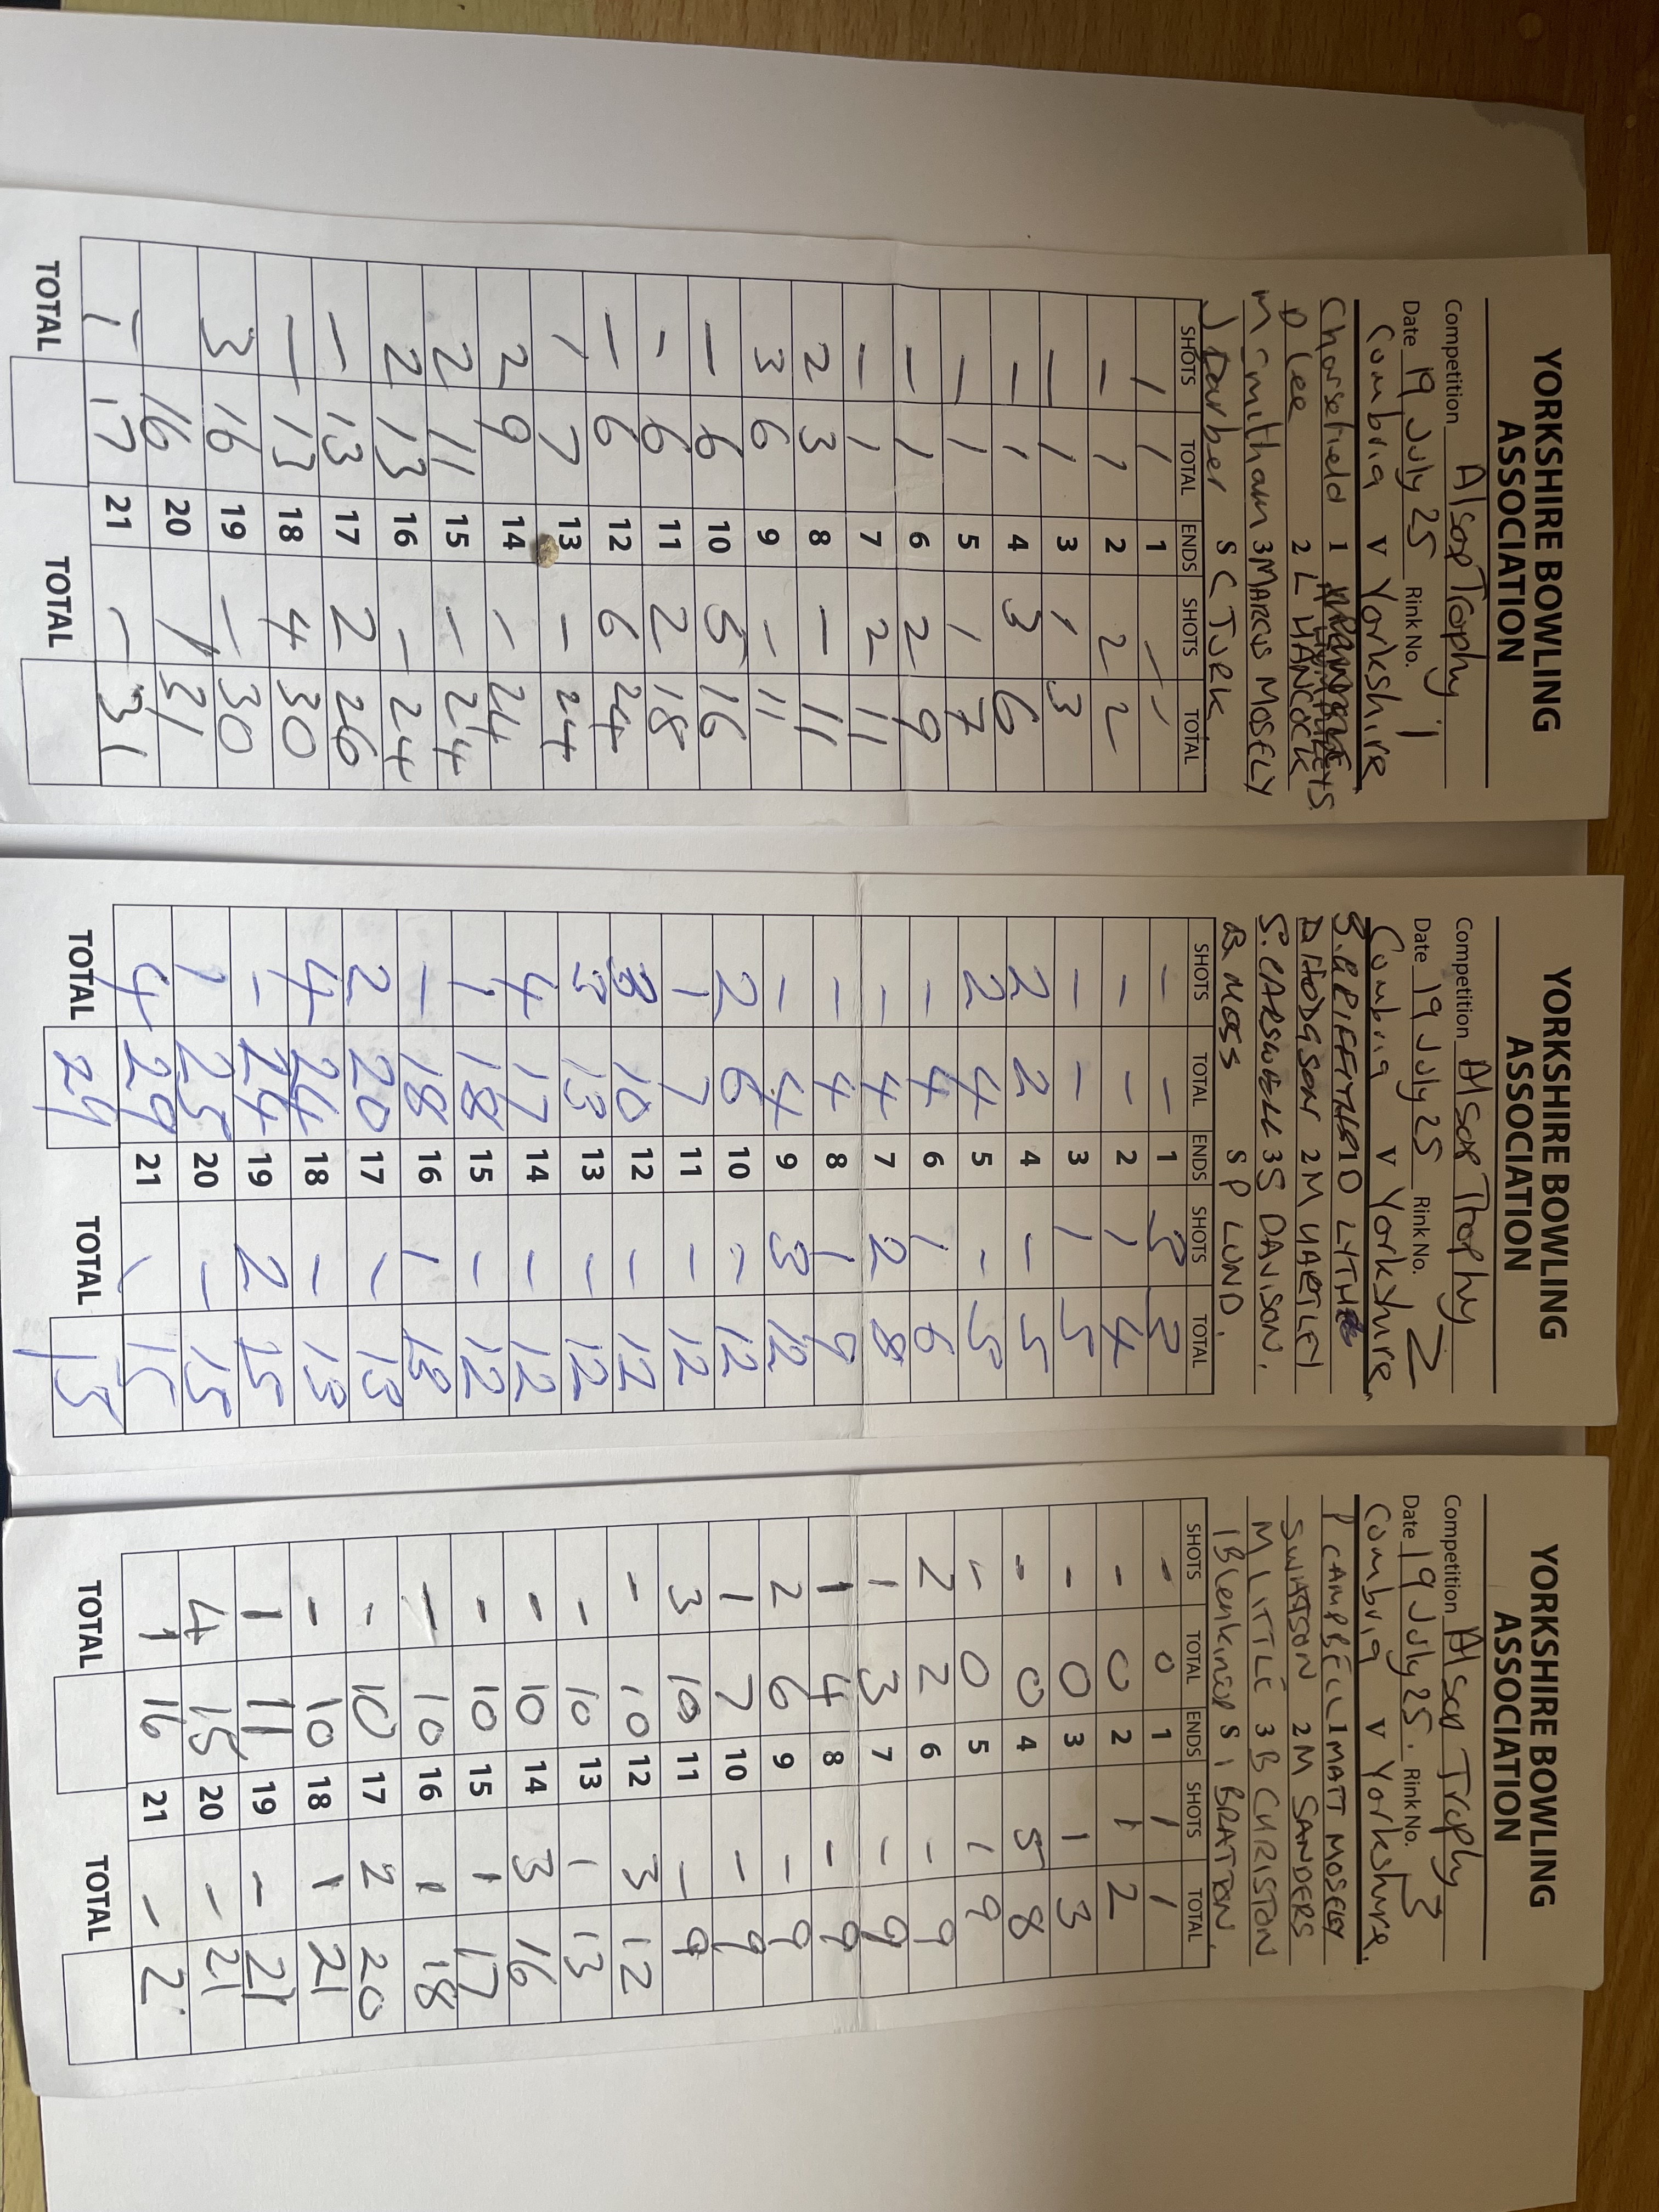 YORKSHIRE BOWLING
ASSOCIATION
Competition Alsop Trophy
Date 19 July 25 Rink No. 1
Cumbria V Yorkshire
C horsefield 1
D Lee 2 L HANCOCK
M Smitham 3 MARCUS MOSELY
J Darber S C TURK
SHOTS TOTAL ENDS SHOTS TOTAL
1 1 1 - -
- 1 2 2 2
- 1 3 1 3
- 1 4 3 6
- 1 5 1 7
- 1 6 2 9
- 1 7 2 11
2 3 8 - 11
3 6 9 - 11
- 6 10 5 16
- 6 11 2 18
- 6 12 6 24
1 7 13 - 24
2 9 14 - 24
2 11 15 - 24
2 13 16 - 24
- 13 17 2 26
- 13 18 4 30
3 16 19 - 30
16 20 1 31
1 17 21 - 31
TOTAL TOTAL
YORKSHIRE BOWLING
ASSOCIATION
Competition Alsop Trophy
Date 19 July 25 Rink No. 2
Cumbria V Yorkshire
1 D LYTHE
D HODGSON 2 M HARTLEY
S. CARSWELL 3 S DAVISON.
B. MOSS S P LUND.
SHOTS TOTAL ENDS SHOTS TOTAL
- - 1 3 3
- - 2 1 4
- - 3 1 5
2 2 4 - 5
2 4 5 - 5
- 4 6 1 6
- 4 7 2 8
- 4 8 1 9
- 4 9 3 12
2 6 10 - 12
1 7 11 - 12
3 10 12 - 12
3 13 13 - 12
4 17 14 - 12
1 18 15 - 12
- 18 16 1 13
2 20 17 - 13
4 24 18 - 13
- 24 19 2 15
1 25 20 - 15
4 29 21 - 15
TOTAL 29 TOTAL 15
YORKSHIRE BOWLING
ASSOCIATION
Competition Alsop Trophy
Date 19 July 25. Rink No. 3
Cumbria V Yorkshire.
P CAMPBELL 1 MATT MOSELY
S WATSON 2 M SANDERS
M LITTLE 3 B CHRISTON
I Blenkinsop S I BRATTON.
SHOTS TOTAL ENDS SHOTS TOTAL
- 0 1 1 1
- 0 2 1 2
- 0 3 1 3
- 0 4 5 8
- 0 5 1 9
2 2 6 - 9
1 3 7 - 9
1 4 8 - 9
2 6 9 - 9
1 7 10 - 9
3 10 11 - 9
- 10 12 3 12
- 10 13 1 13
- 10 14 3 16
- 10 15 1 17
- 10 16 1 18
- 10 17 2 20
- 10 18 1 21
1 11 19 - 21
4 15 20 - 21
1 16 21 - 21
TOTAL TOTAL